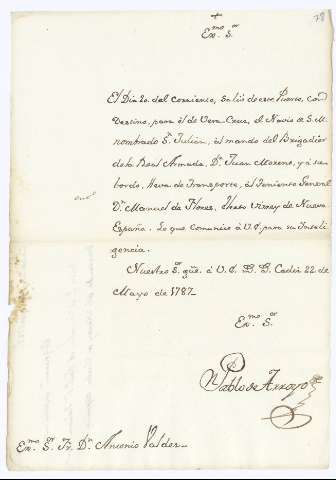 78
+
Ex.mo S.or
El Dia 20. del corriente, Salió de este Puerto, con
Destino, para el de Vera-Cruz, el Navio de S. M.
nombrado S.n Julian, al mando del Brigadier
de la Real Armada, D.n Juan Moreno, y á su
bordo, lleva de Transporte, al Teniente General
D.n Manuel de Flores, Virrey de Nueva
España. Lo que comunico á V.E. para su Inteli
gencia.
Nuestro S.r gũe. á V.E. Cadiz 22 de
Mayo de 1787.
Ex.mo S.or
Pablo de Arroyo
Ex.mo S.or Fr. D.n Antonio Valdes